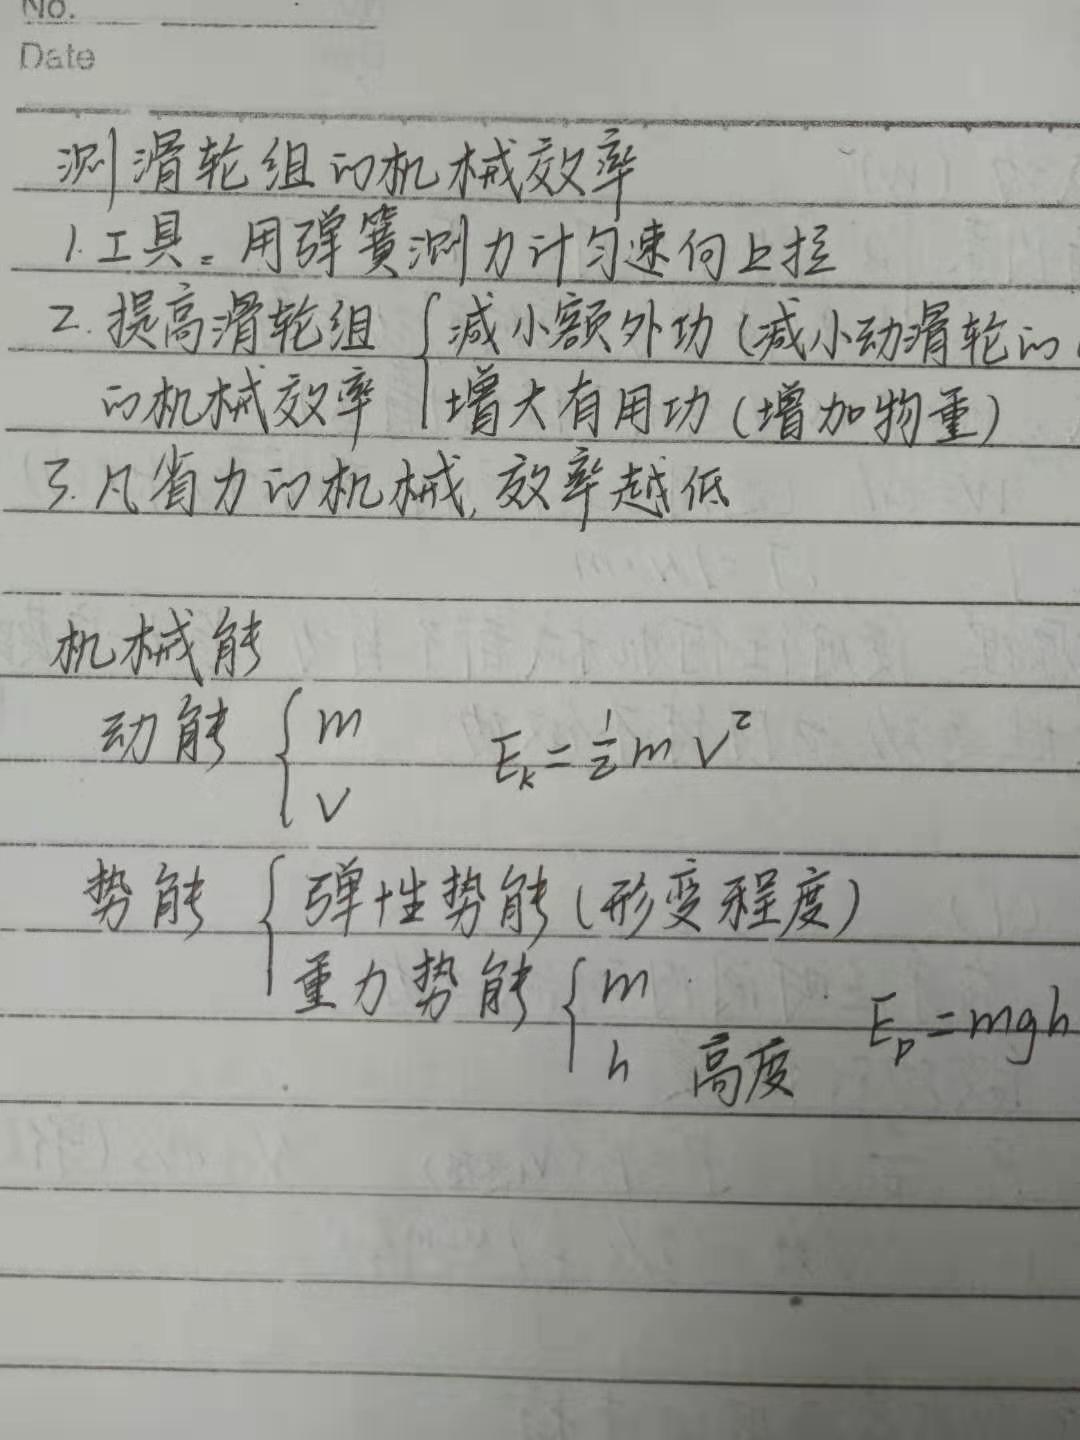 No.
Date
测滑轮组的机械效率
1.工具。用弹簧测力计匀速向上拉
2.提高滑轮组 { 减小额外功(减小动滑轮的
的机械效率 增大有用功(增加物重)
3.凡省力的机械,效率越低
机械能
动能 { m
v
E_k=½mv²
势能 { 弹性势能(形变程度)
重力势能 { m
h 高度 E_p=mgh